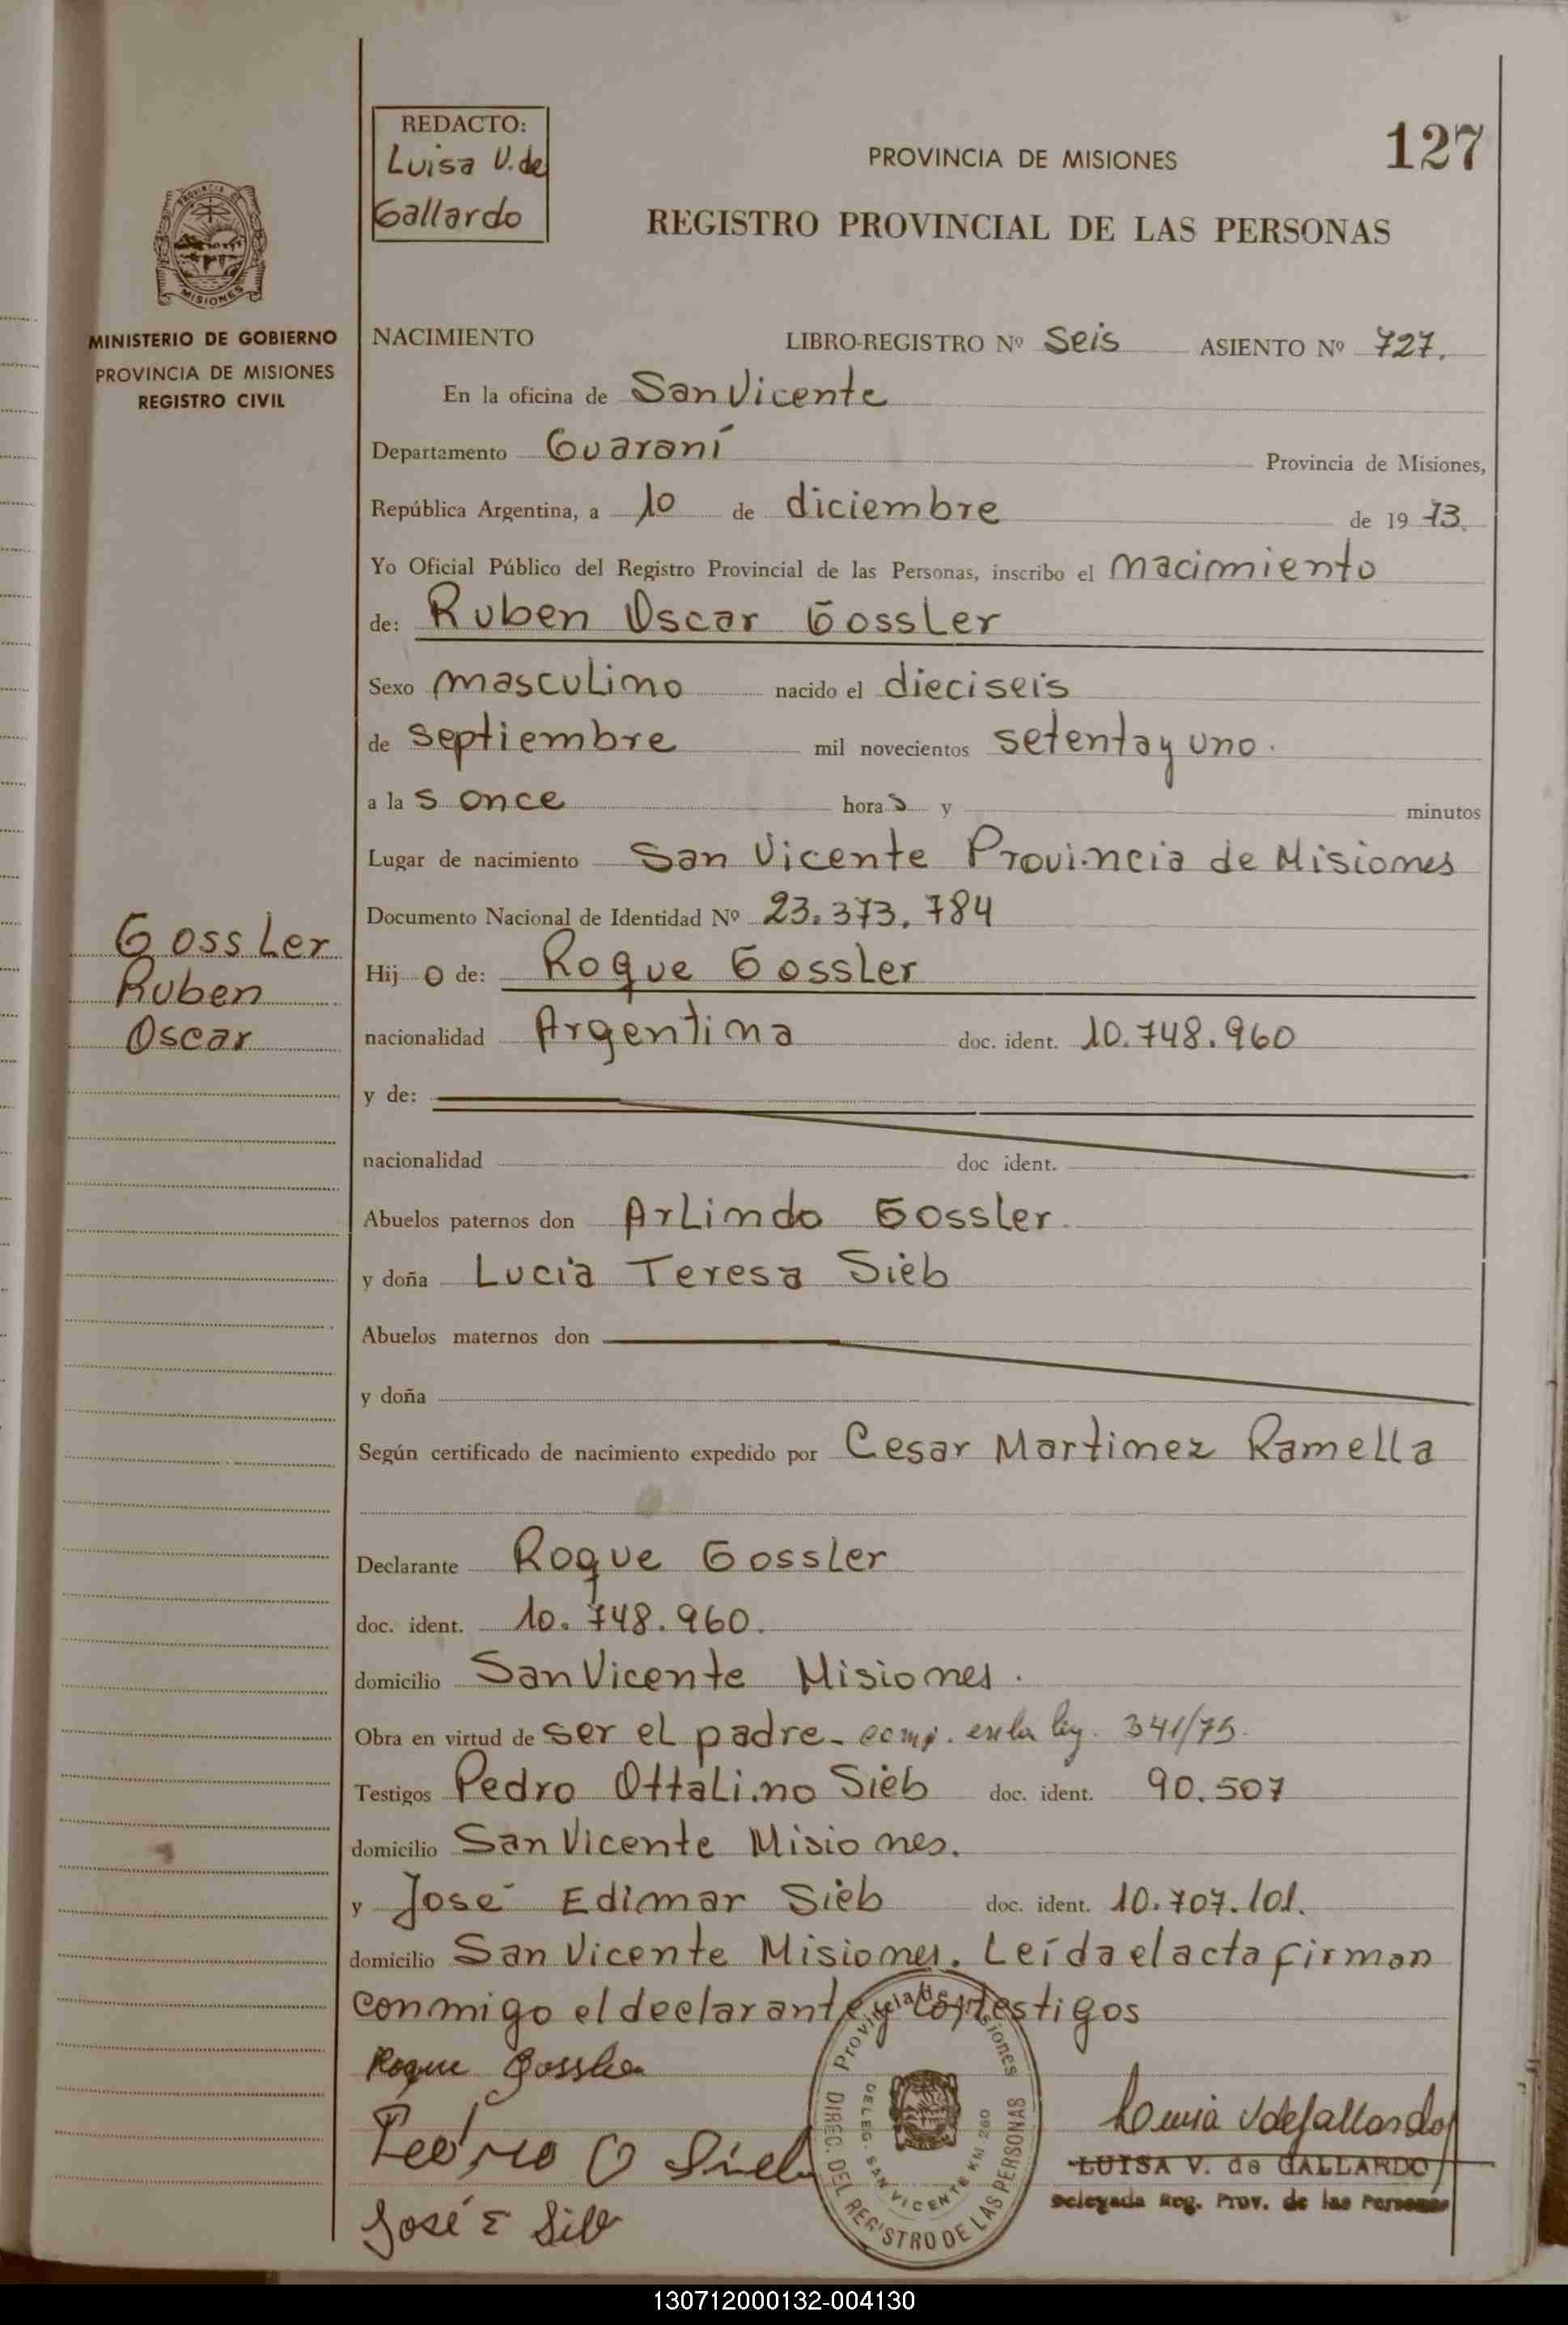 REDACTO:
Luisa V. de
Gallardo
PROVINCIA DE MISIONES
127
REGISTRO PROVINCIAL DE LAS PERSONAS
PROVINCIA DE
MISIONES
MINISTERIO DE GOBIERNO
PROVINCIA DE MISIONES
REGISTRO CIVIL
NACIMIENTO LIBRO-REGISTRO Nº Seis ASIENTO Nº 727.
En la oficina de San Vicente
Departamento Guaraní Provincia de Misiones,
República Argentina, a 10 de diciembre de 1973.
Yo Oficial Público del Registro Provincial de las Personas, inscribo el nacimiento
de: Ruben Oscar Gossler
Sexo masculino nacido el dieciseis
de septiembre mil novecientos setenta y uno.
a las once horas y minutos
Lugar de nacimiento San Vicente Provincia de Misiones
Documento Nacional de Identidad Nº 23.373.784
Gossler
Ruben
Oscar
Hijo de: Roque Gossler
nacionalidad Argentina doc. ident. 10.748.960
y de:
nacionalidad doc ident.
Abuelos paternos don Arlindo Gossler
y doña Lucia Teresa Sieb
Abuelos maternos don
y doña
Según certificado de nacimiento expedido por Cesar Martinez Ramella
Declarante Roque Gossler
doc. ident. 10.748.960.
domicilio San Vicente Misiones.
Obra en virtud de ser el padre- comp. en la ley. 341/75.
Testigos Pedro Ottalino Sieb doc. ident. 90.507
domicilio San Vicente Misiones.
y José Edimar Sieb doc. ident. 10.707.101.
domicilio San Vicente Misiones. Leída el acta firman
conmigo el declarante y los testigos
Roque Gossler
Pedrio O Sieb
José E Sieb
Provincia de Misiones
DIREC. DEL REGISTRO DE LAS PERSONAS
DELEG. SAN VICENTE KM 260
Luisa V de Gallardo
LUISA V. de GALLARDO
Delegada Reg. Prov. de las Personas
130712000132-004130